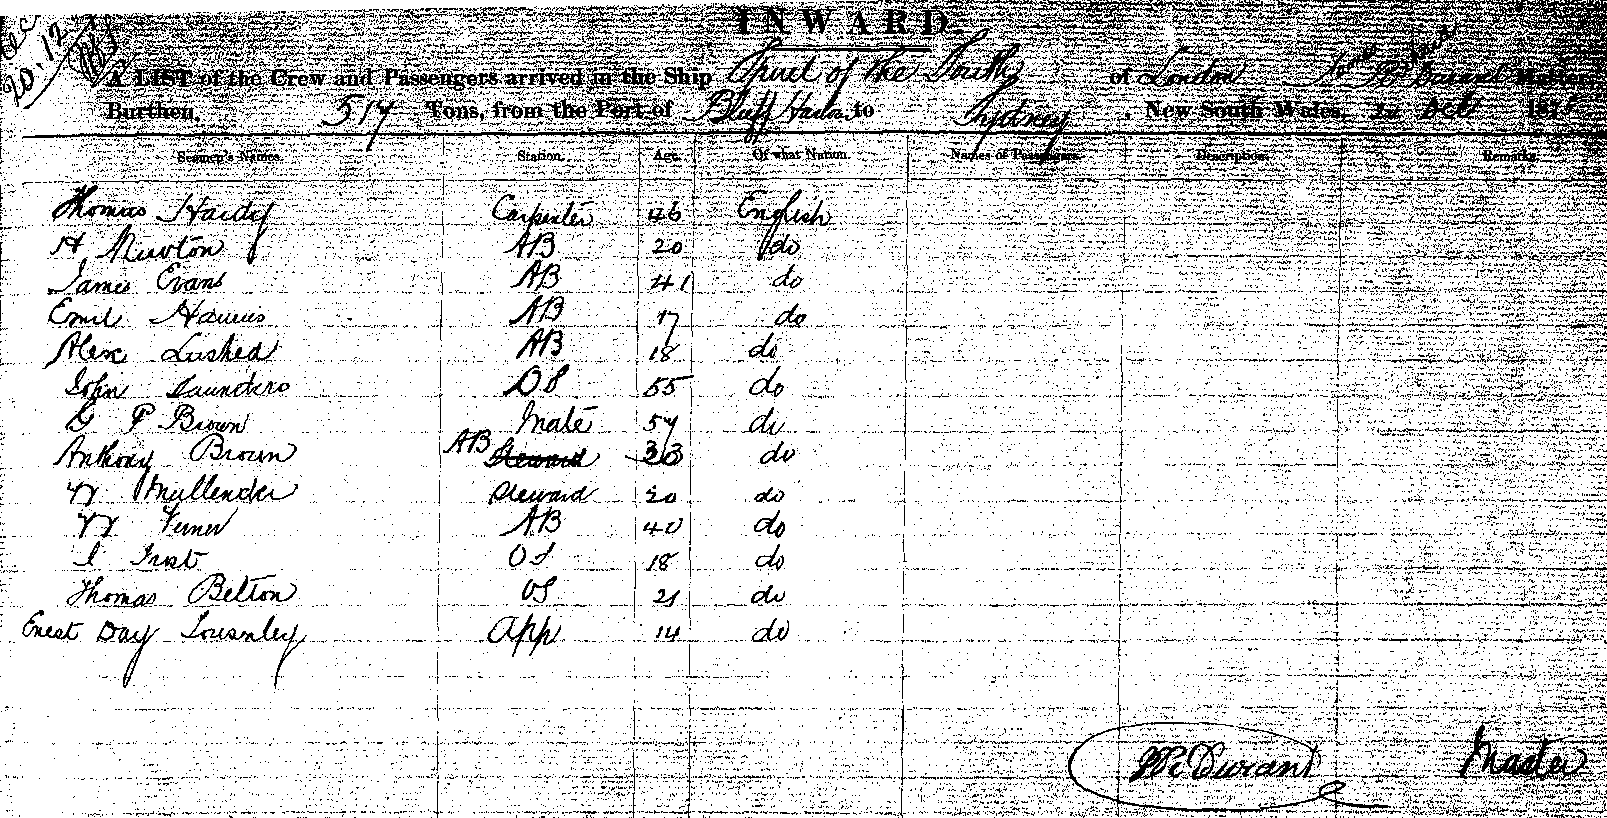 INWARD.
A LIST of the Crew and Passengers arrived in the Ship Spirit of the South of London Durant Master,
Burthen, 514 Tons, from the Port of Bluff Harbr to Sydney, New South Wales, Oct 187
Seamen's Names. Station. Age. Of what Nation. Names of Passengers. Description. Remarks.
Thomas Hardy Carpenter 46 English
H Newton AB 20 do
James Evans AB 41 do
Emil AB 17 do
Alex AB 18 do
John Saunders OS 55 do
G P Brown Mate 57 do
Anthony Brown AB Steward 33 do
W Mullender Steward 20 do
W Verner AB 40 do
I Frost OS 18 do
Thomas Belton OS 21 do
Enest Day Lousenley App 14 do
Durant Master